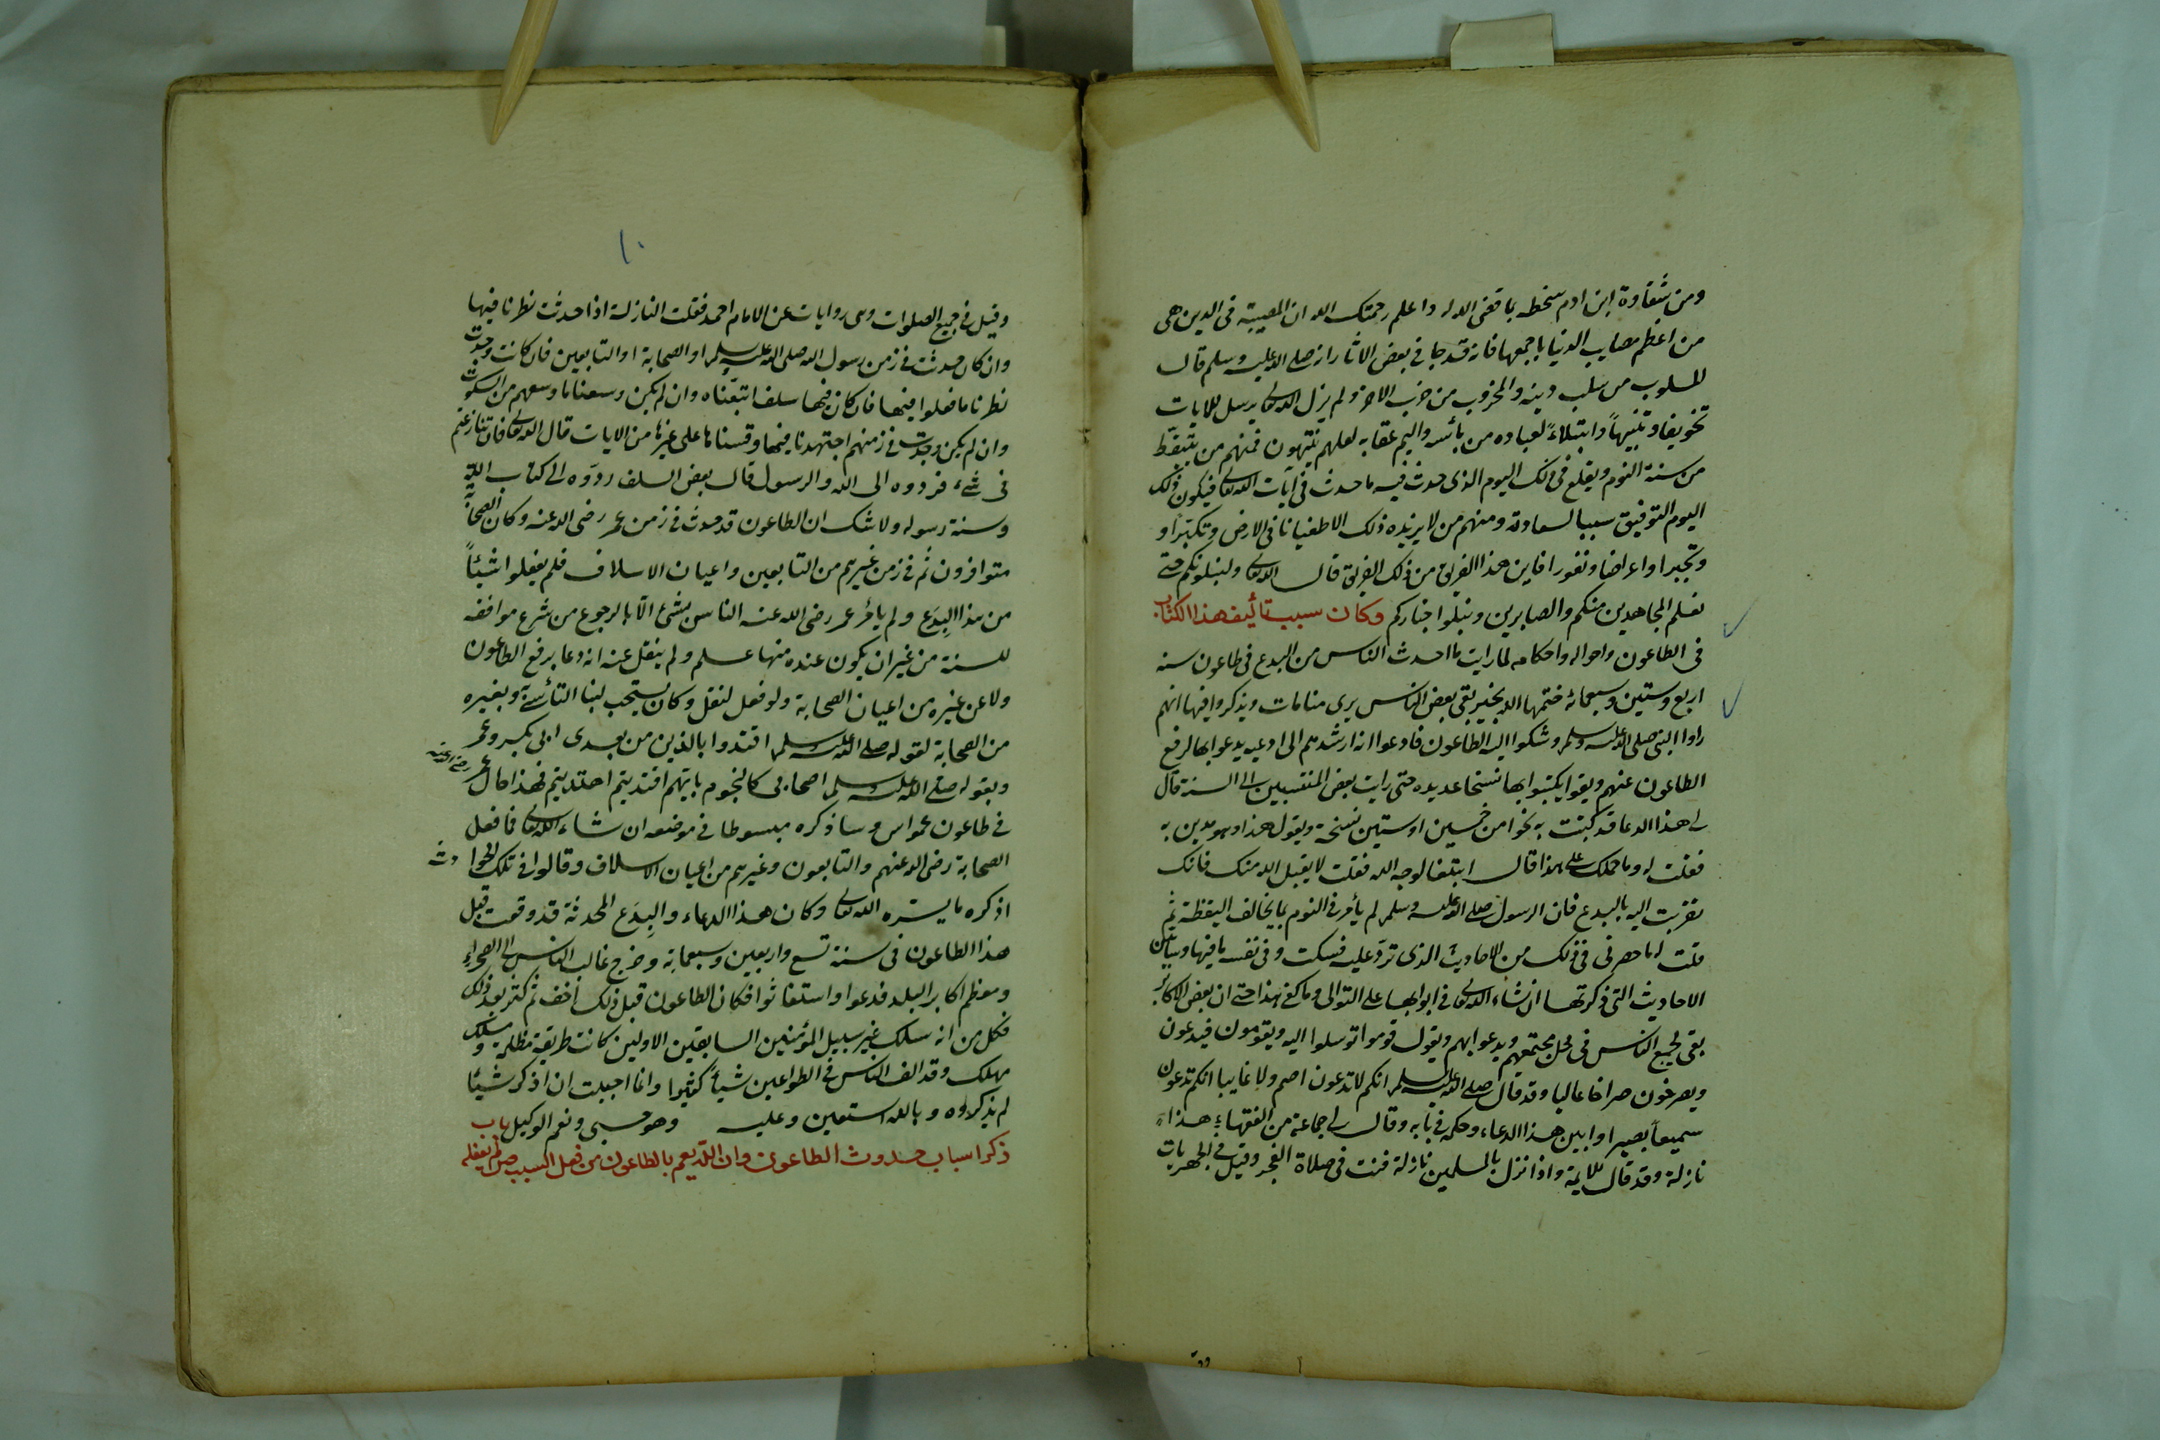 ومن شقاوة ابن ادم سخطه بما قضى الله له واعلم رحمك الله ان المصيبة فى الدين هى
من اعظم مصايب الدنيا باجمعها فانه قد جا فى بعض الاثار انه صلى الله عليه وسلم قال
المسلوب من سلب دينه والمخروب من خرب الاخره ولم يزل الله تعالى يرسل للايات
تخويفا وتنبيهاً وابتلاءً لعباده من بأسه واليم عقابه لعلهم ينتهون فمنهم من يتيقظ
من سنة النوم ويقلع فى ذلك اليوم الذى حدث فيه ما حدث فى آيات الله تعالى فيكون ذلك
اليوم التوفيق سببا لسعادته ومنهم من لا يزيده ذلك الا طغيانا فى الارض وتكبرا و
وتجبرا واعراضا ونفورا فاين هذا الفريق من ذلك الفريق قال الله تعالى ولنبلونكم حتى
نعلم المجاهدين منكم والصابرين ونبلوا اخباركم وكان سبب تأليف هذا الكتاب
فى الطاعون واحواله واحكامه لما رايت ما احدث الناس من البدع فى طاعون سنه
اربع وستين وسبعمائه ختمها الله بخير بقى بعض الناس يرى منامات ويذكروا فيها انهم
راوا النبى صلى الله عليه وسلم وشكوا اليه الطاعون فادعوا انه ارشدهم الى ادعيه يدعوا بها لرفع
الطاعون عنهم وبقوا يكتبوا بها نسخا عديده حتى رايت بعض المنتسبين الى السنة قال
لى هذا الدعا قد كتبت به نحوا من خمسين او ستين نسخة ويقول هذا وهو يدين به
فقلت له وما حملك على هذا قال ابتغا لوجه الله فقلت لا يقبل الله منك فانك
تقربت اليه بالبدع فان الرسول صلى الله عليه وسلم لم يأمر فى النوم بما يخالف اليقظة ثم
قلت له ما حضرنى فى ذلك من الاحاديث الذى ترد عليه فسكت وفى نفسه ما فيها وسابين
الاحاديث التى ذكرتها ان شاء الله تعالى فى ابوابها على التوالى وما كفى هذا حتى ان بعض الاكابر
بقى يجمع الناس فى محل مجتمعهم ويدعوا بهم ويقول قوموا توسلوا اليه ويقومون فيدعون
ويصرخون صراخا عاليا وقد قال صلى الله عليه وسلم انكم لا تدعون اصم ولا غايبا انكم تدعون
سميعاً بصيرا وابين هذا الدعاء وحكمه فى بابه وقال لى جماعة من الفقهاء هذا
نازلة وقد قال الايمة واذا نزل بالمسلمين نازلة قنت فى صلاة الفجر وقيل فى الجهريات
١٠
وقيل فى جميع الصلوات وهى روايات عن الامام احمد فقلت النازلة اذا حدثت نظرنا فيها
وان كان حدثت فى زمن رسول الله صلى الله عليه وسلم او الصحابة او التابعين فان كانت وجدت
نظرنا ما فعلوا فيها فان كان فيها سلف اتبعناه وان لم يكن وسعنا ما وسعهم من السكوت
وان لم يكن وجدت فى زمنهم اجتهدنا فيها وقسناها على غيرها من الايات قال الله تعالى فان تنازعتم
فى شئ، فردوه الى الله والرسول قال بعض السلف ردوه الى كتاب الله
وسنة رسوله ولا شك ان الطاعون قد حدث فى زمن عمر رضى الله عنه وكان الصحابة
متوافرون ثم فى زمن غيرهم من التابعين واعيان الاسلاف فلم يفعلوا شيئاً
من هذا البدع ولم يأمر عمر رضى الله عنه الناس بشئ الا بالرجوع من سرع موافقه
للسنة من غير ان يكون عنده منها علم ولم ينقل عنه انه دعا برفع الطاعون
ولا عن غيره من اعيان الصحابة ولو فعل لنقل وكان يستحب لنا التأسى به وبغيره
من الصحابة لقوله صلى الله عليه وسلم اقتدوا بالذين من بعدى ابى بكر وعمر
وبقوله صلى الله عليه وسلم اصحابى كالنجوم بايهم اقتديتم اهتديتم فهذا حال عمر رضى الله عنه
فى طاعون عمواس وساذكره مبسوطا فى موضعه ان شاء الله تعالى فما فعل
الصحابة رضى الله عنهم والتابعون وغيرهم من اعيان الاسلاف وقالوا فى تلك الحوادث
اذكره ما يسره الله تعالى وكان هذا الدعاء والبدع المحدثة قد وقعت قبل
هذا الطاعون فى سنة تسع واربعين وسبعمايه وخرج غالب الناس الى الصحراء
ومعظم اكابر البلد فدعوا واستغاثوا فكان الطاعون قبل ذلك اخف ثم كثر بعد ذلك
فكل من انه سلك غير سبيل المؤمنين السابقين الاولين كانت طريقة مظلمه مسلك و
مهلك وقد الف الناس فى الطواعين شيأ كثيرا وانما احببت ان اذكر شيئا
لم يذكروه وبالله استعين وعليه وهو حسبى ونعم الوكيل باب
ذكر اسباب حدوث الطاعون وان الله يعم بالطاعون من فعل السبب ومن لم يفعله